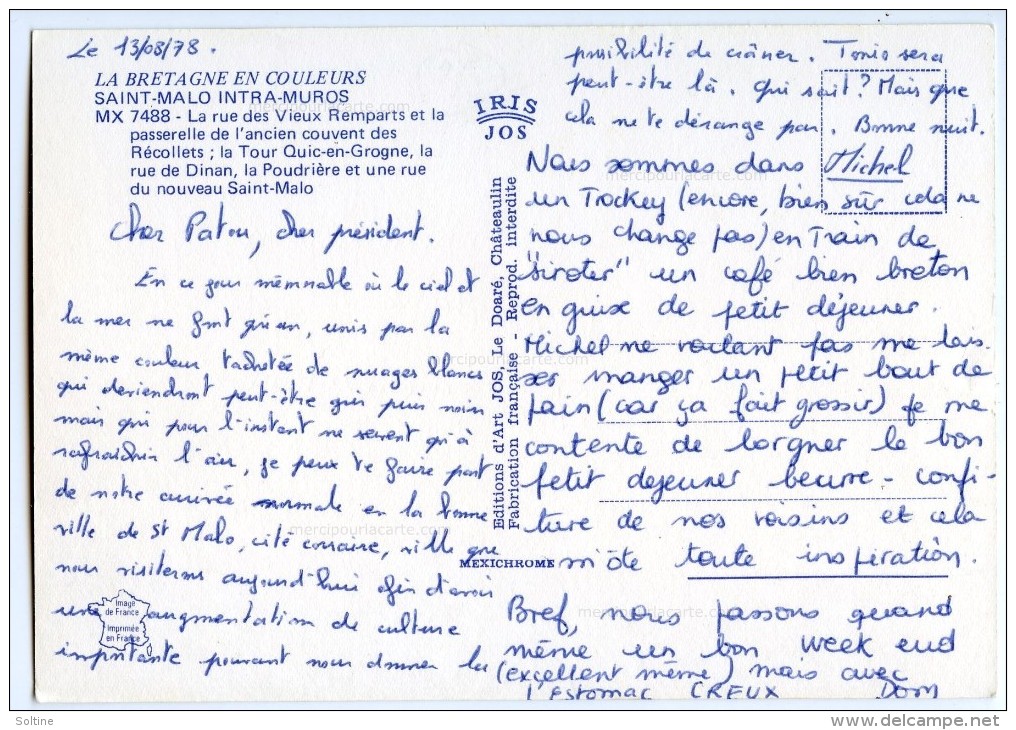 Le 13/08/78.
LA BRETAGNE EN COULEURS
SAINT-MALO INTRA-MUROS
MX 7488 - La rue des Vieux Remparts et la
passerelle de l'ancien couvent des
Récollets ; la Tour Quic-en-Grogne, la
rue de Dinan, la Poudrière et une rue
du nouveau Saint-Malo
Cher Patou, cher président.
En ce jour mémorable où le ciel et
la mer ne font qu'un, unis par la
même couleur, tachetée de nuages blancs
qui deviendront peut-être gris puis noirs
mais qui pour l'instant ne servent qu'à
rafraichir l'air, je peux te faire part
de notre arrivée normale en la bonne
ville de St Malo, cité corsaire, ville que
nous visiterons aujourd'hui afin d'avoir
une augmentation de culture
importante pouvant nous donner la
possibilité de crâner. Tonio sera
peut-être là. Qui sait? Mais que
cela ne te dérange pas. Bonne nuit.
Michel
IRIS
JOS
Editions d'Art JOS, Le Doaré, Châteaulin
Fabrication française - Reprod. Interdite
MEXICHROME
Image
de France
Imprimée
en France
Nous sommes dans
un Trockey (encore, bien sûr cela ne
nous change pas) en train de
"siroter" un café bien breton
en guise de petit déjeuner.
Michel ne voulant pas me lais-
ser manger un petit bout de
pain (car ça fait grossir) je me
contente de lorgner le bon
petit dejeuner beurre - confi-
ture de nos voisins et cela
m'ôte toute inspiration.
Bref, nous passons quand
même un bon week end
(excellent même) mais avec
l'Estomac CREUX DOM
mercipourlacarte.com
mercipourlacarte.com
mercipourlacarte.com
mercipourlacarte.com
mercipourlacarte.com
Soltine
delcampe.net